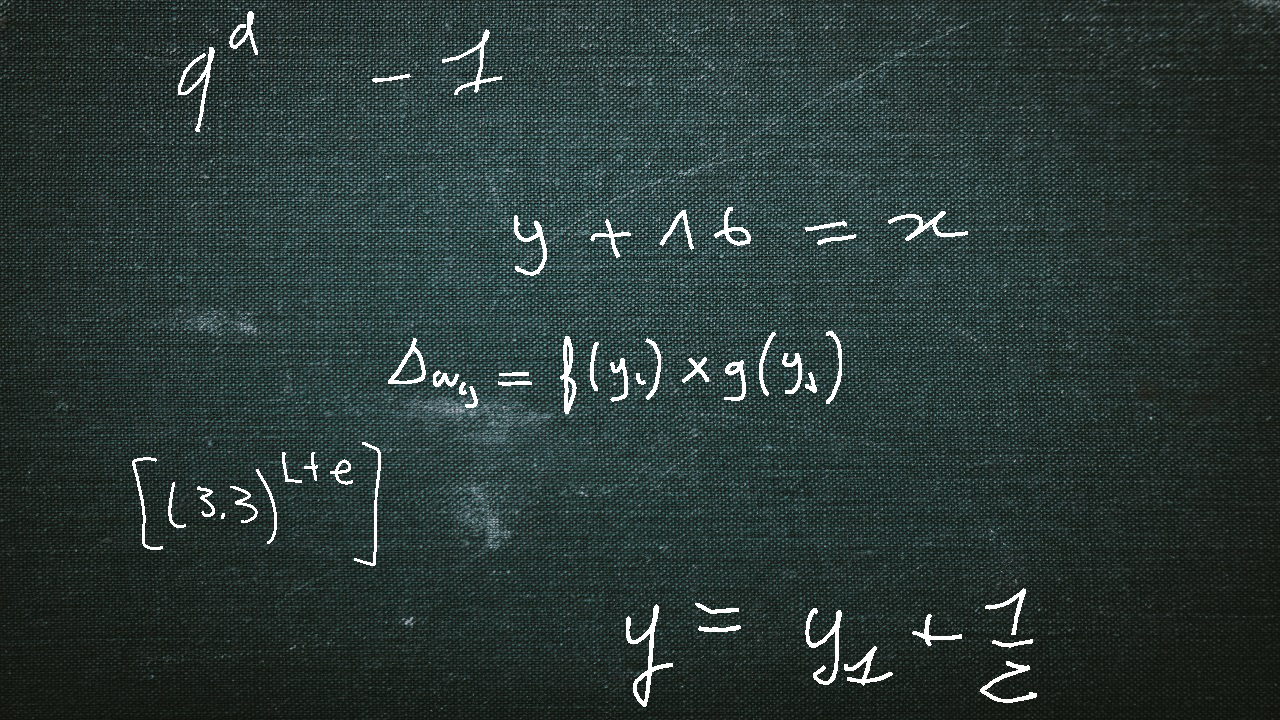 q^d - 1
y + 16 = x
Δw_{ij} = f(y_i) × g(y_j)
[(3.3)^{L+e}]
y = y_1 + \frac{1}{2}